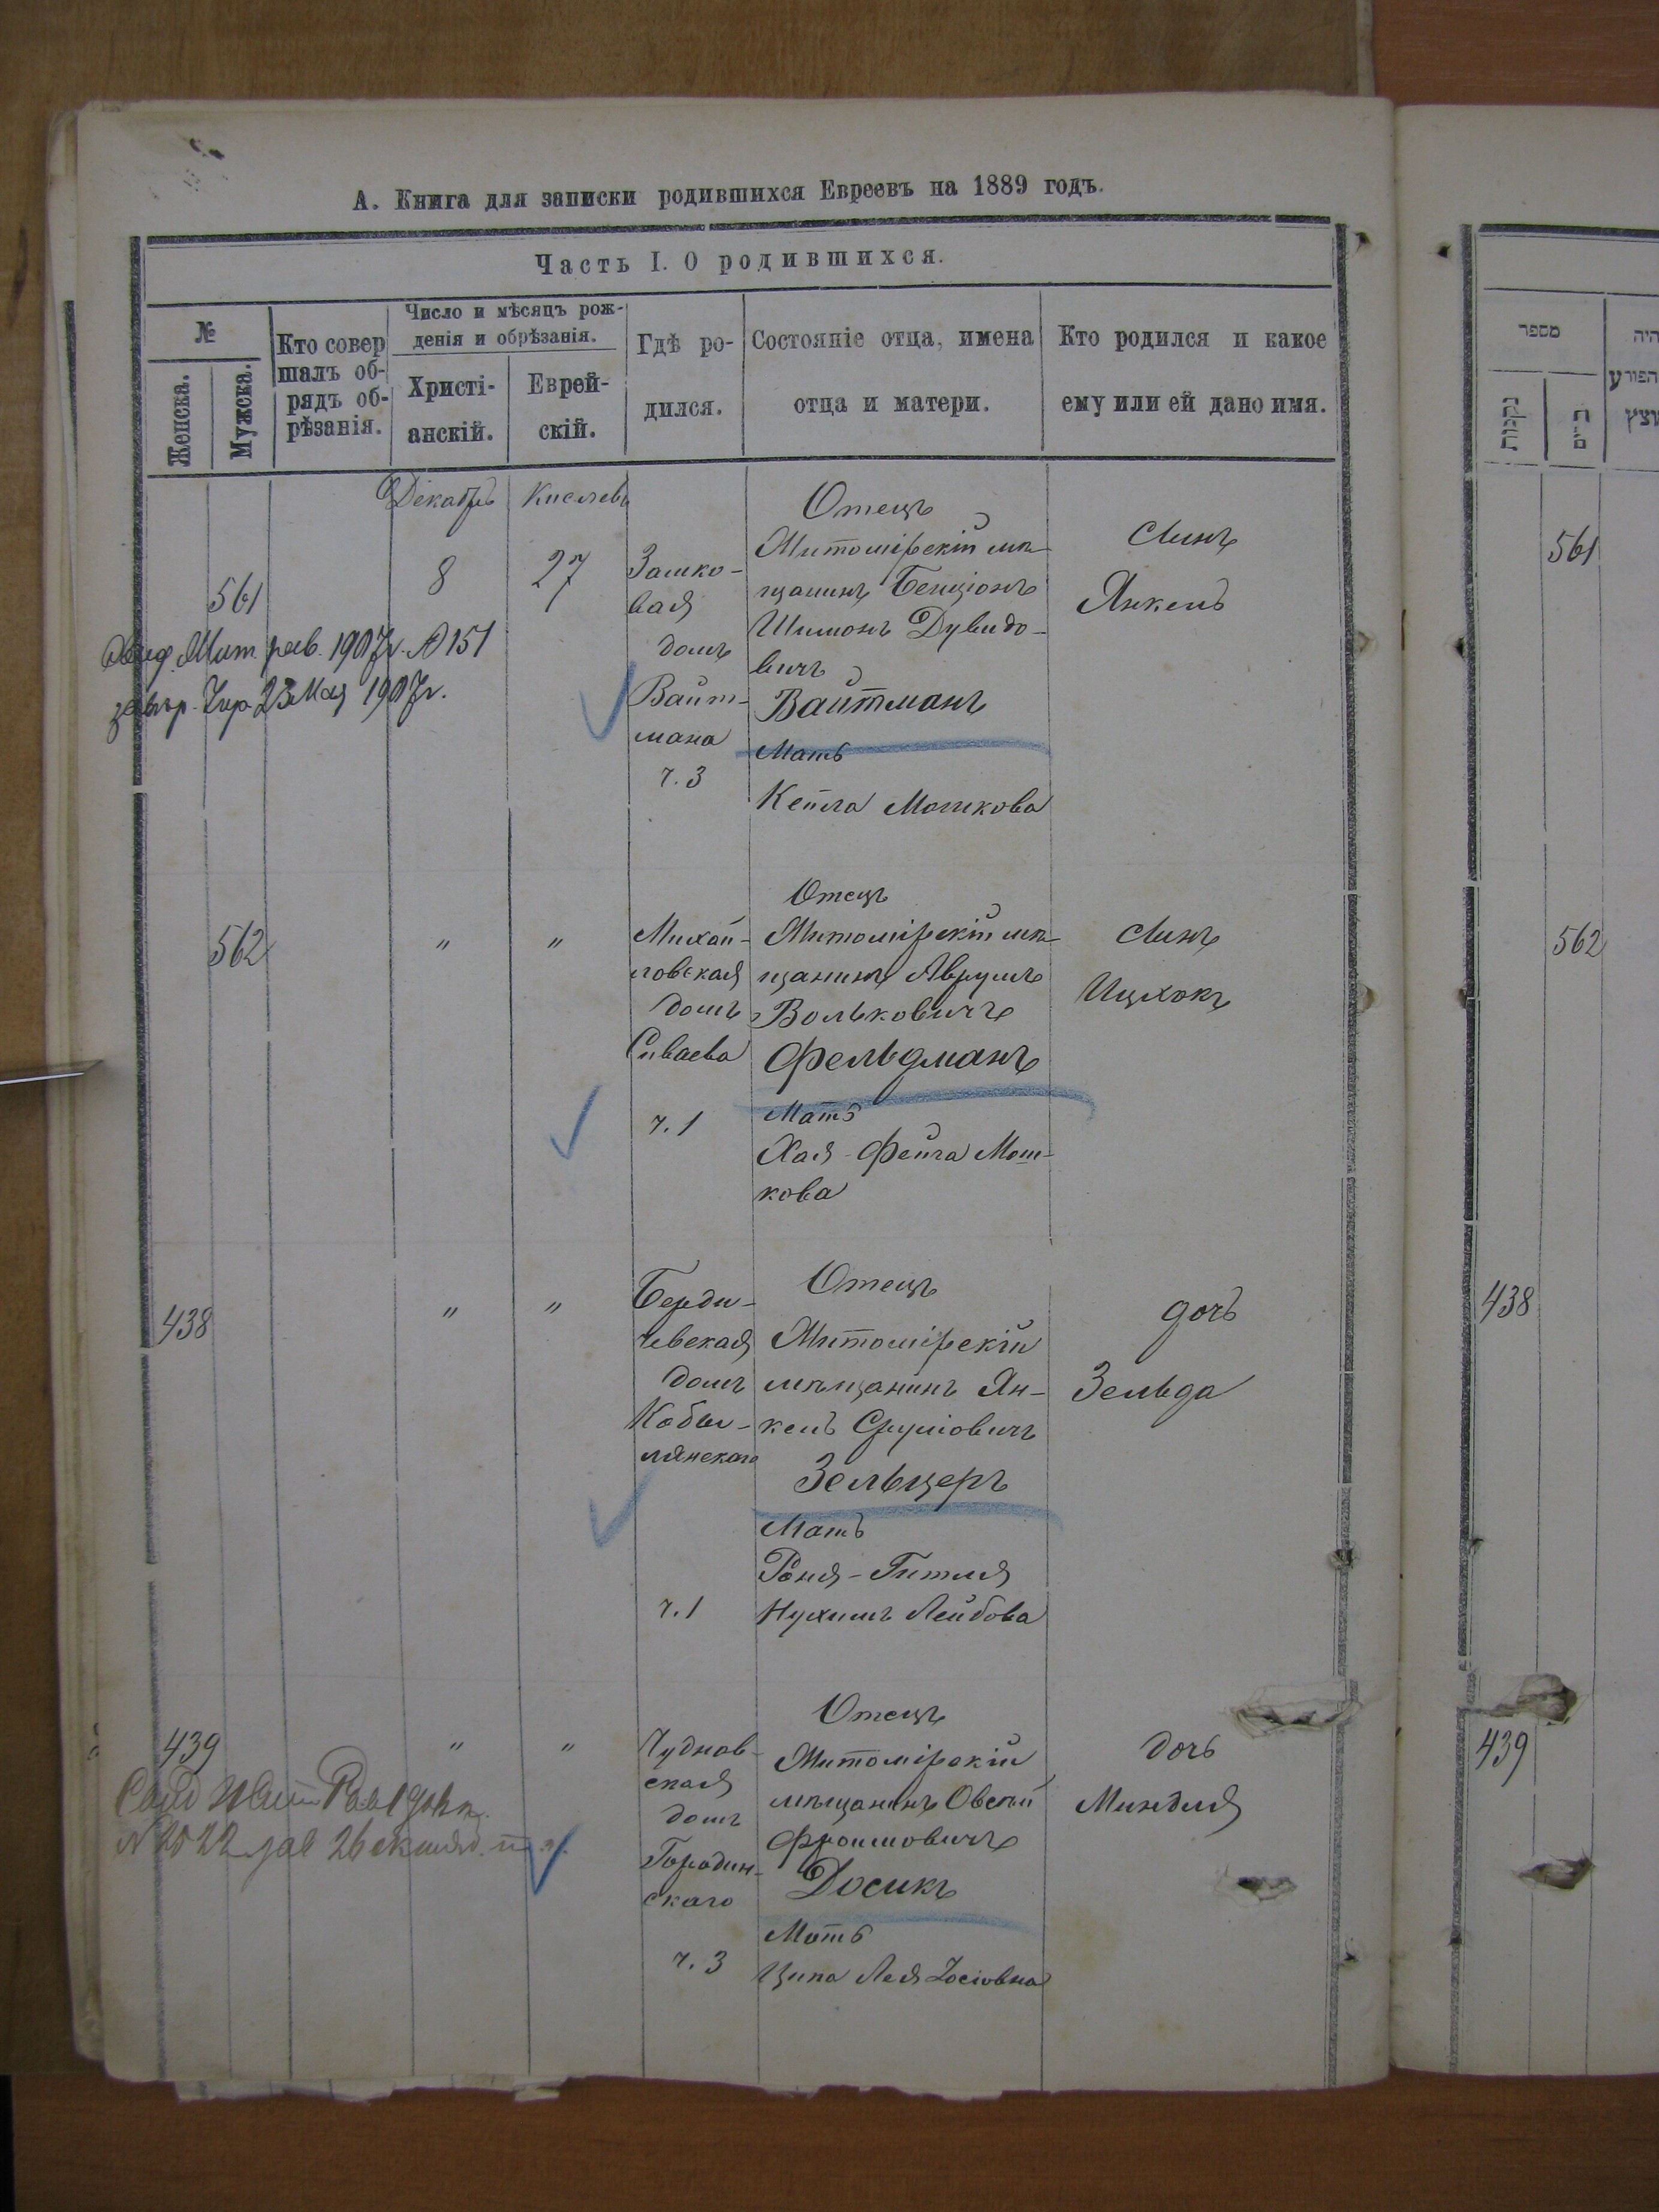 А. Книга для записки родившихся Евреевъ на 1889 годъ.
Часть I. О родившихся.
№
Женска.
Мужска.
Кто совер
шалъ об-
рядъ об-
рѣзанія.
Число и мѣсяцъ рож-
денія и обрѣзанія.
Христі-
анскій.
Еврей-
скій.
Гдѣ ро-
дился.
Состояніе отца, имена
отца и матери.
Кто родился и какое
ему или ей дано имя.
Декабрь
Кислевъ
561
8
27
Замко-
вая
домъ
Вайт-
мана
ч. 3
Отецъ
Житомірскій мѣ-
щанинъ Бенціонъ
Шимонъ Дувидо-
вичъ
Вайтманъ
Мать
Кейла Мошкова
Сынъ
Янкель
1907г. № 151
23 Мая 1907г.
562
"
"
Михай-
ловская
домъ
Сиваева
ч. 1
Отецъ
Житомірскій мѣ-
щанинъ Аврумъ
Вольковичъ
Фельдманъ
Мать
Хая-Фейга Мош-
кова
Сынъ
Ицхокъ
438
"
"
Берди-
чевская
домъ
Кобы-
лянскаго
ч. 1
Отецъ
Житомірскій
мѣщанинъ Ян-
кель Сруліовичъ
Зельцеръ
Мать
Роня-Гитля
Нухимъ Лейбова
дочь
Зельда
439
"
"
Чуднов-
ская
домъ
Городин-
скаго
ч. 3
Отецъ
Житомірскій
мѣщанинъ Овсѣй
Фроимовичъ
Досикъ
Мать
Ципа Лея Іосіовна
дочь
Миндля
מספר
נקבות
זכרים
היה
הפורע
561
562
438
439